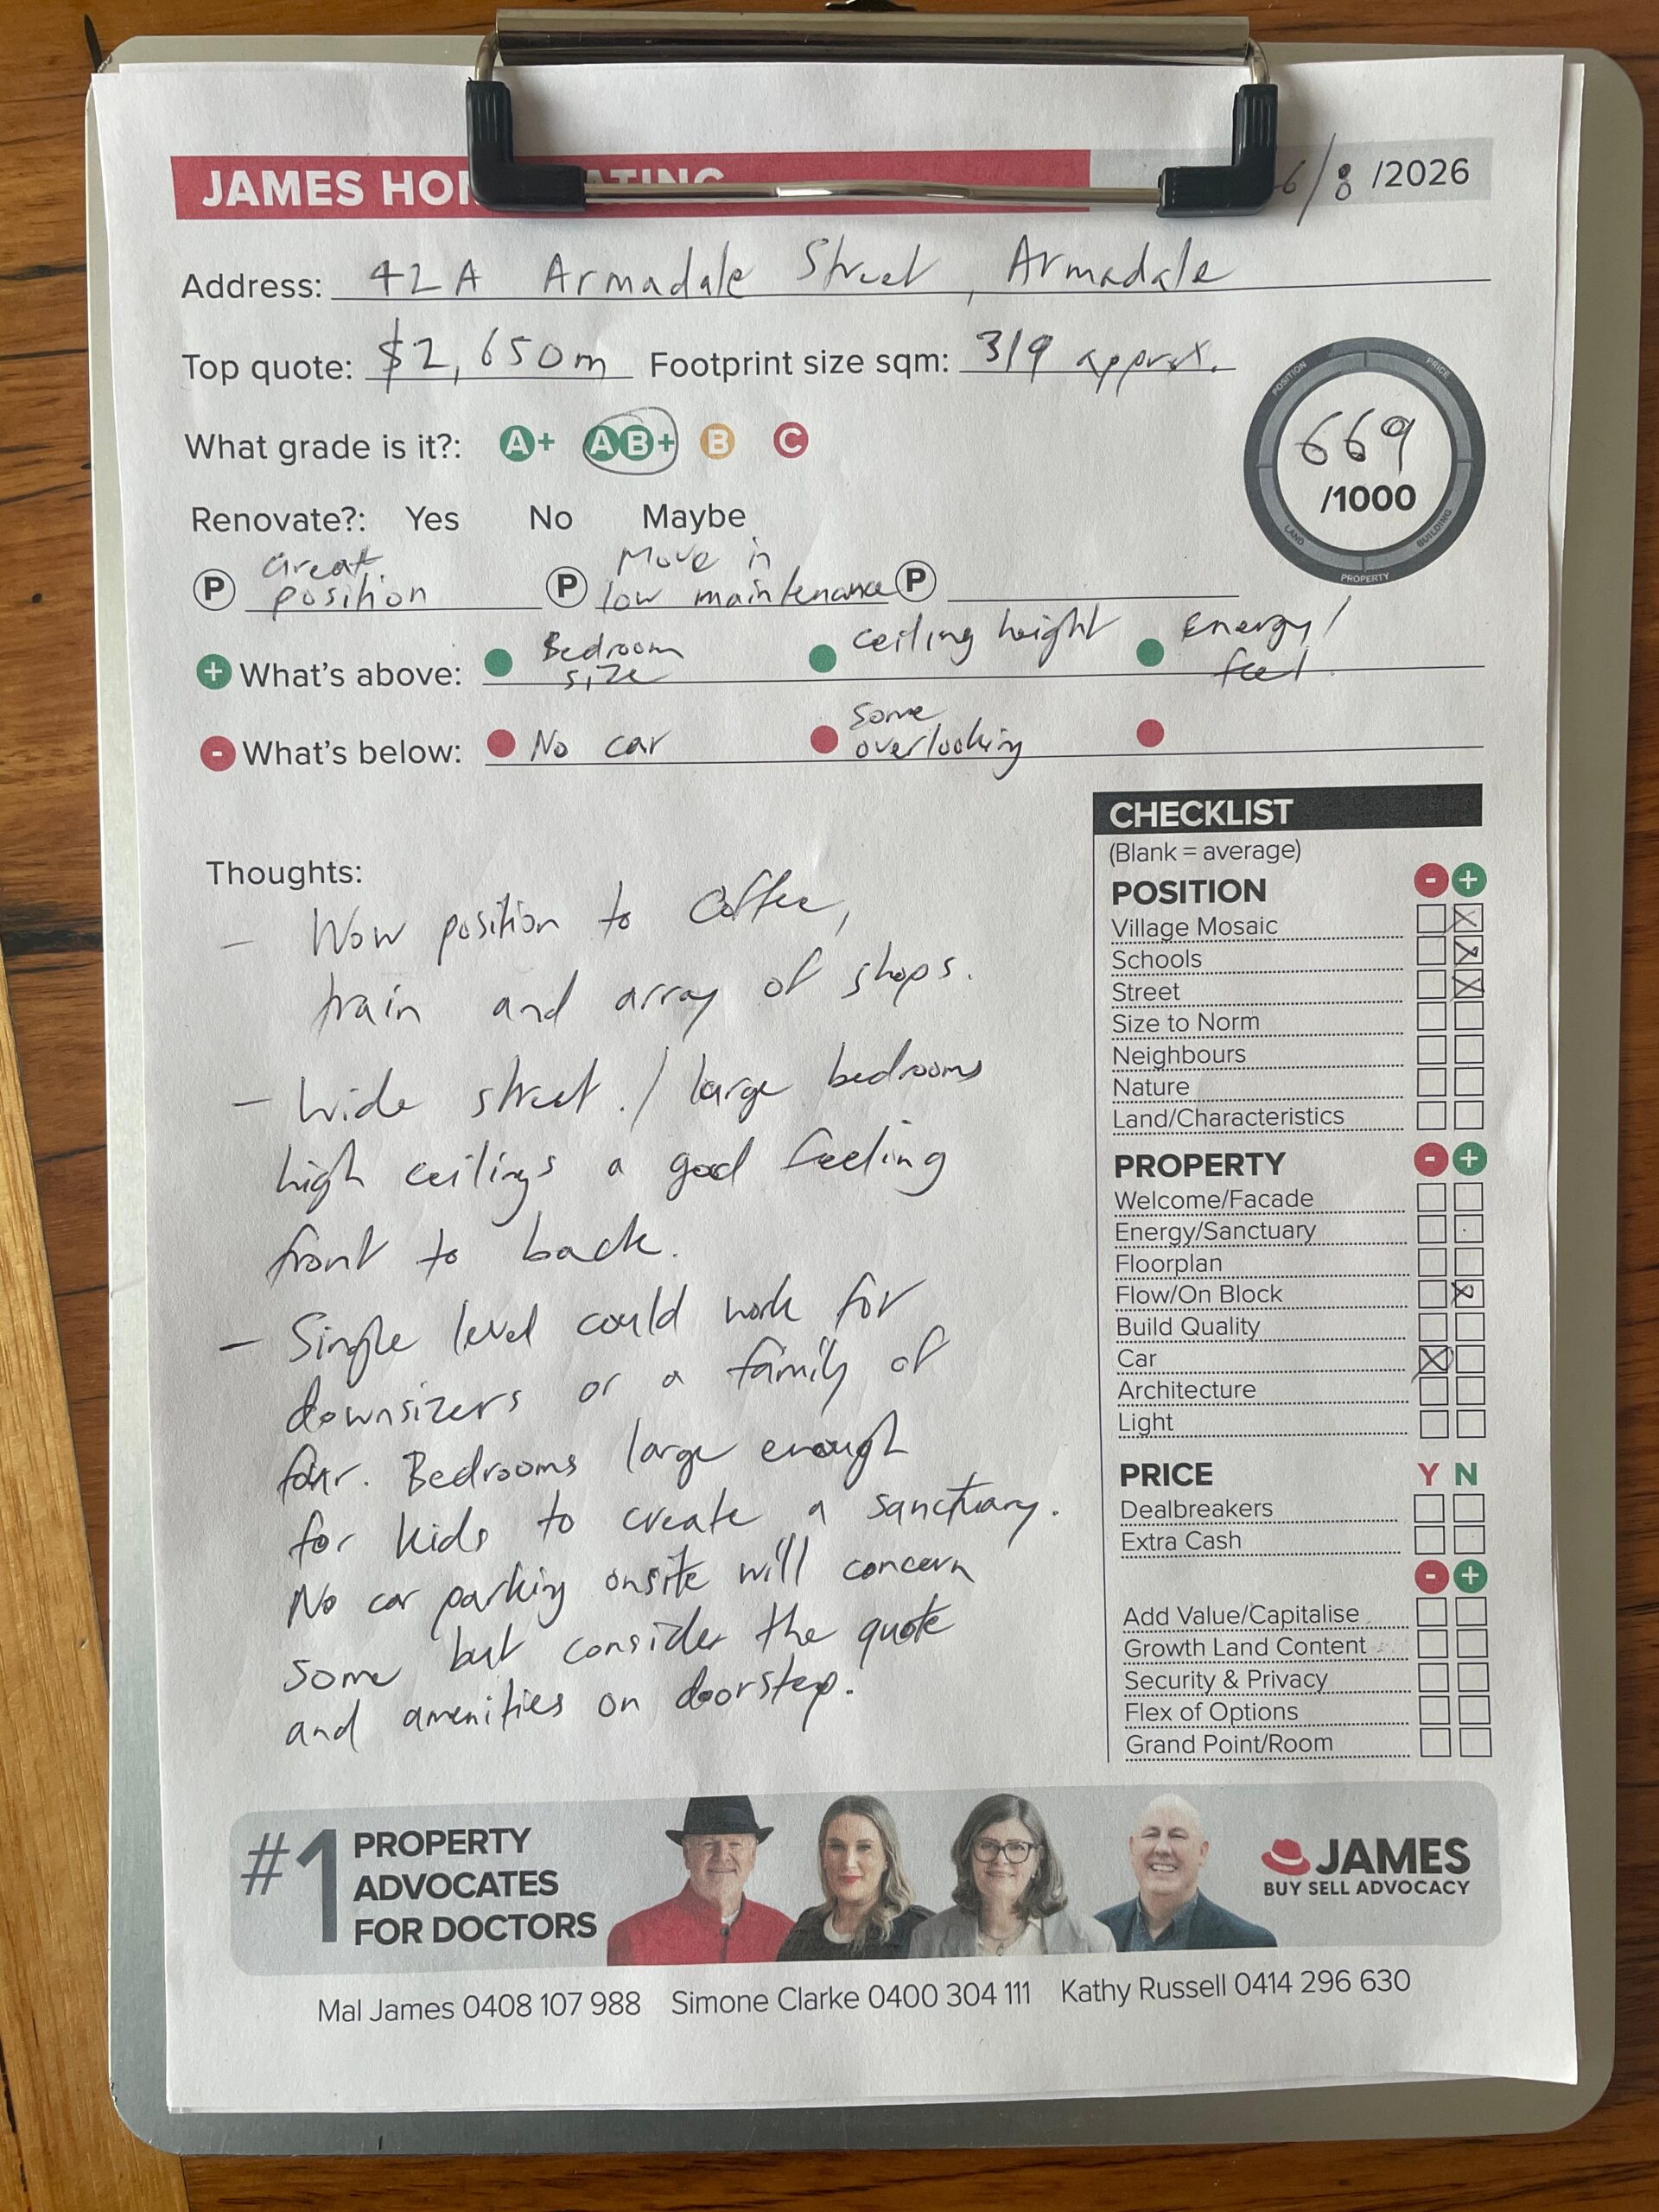 JAMES HO ATING 6/8/2026
Address: 42A Armadale Street, Armadale
Top quote: $2,650m Footprint size sqm: 319 approx.
POSITION PRICE BUILDING PROPERTY LAND
669
/1000
What grade is it?: A+ AB+ B C
Renovate?: Yes No Maybe
P Great position P Move in low maintenance P
+ What's above: Bedroom size ceiling height Energy/feel
- What's below: No car Some overlooking
Thoughts:
- Wow position to coffee,
train and array of shops.
- Wide street. / large bedrooms
high ceilings a good feeling
front to back.
- Single level could work for
downsizers or a family of
four. Bedrooms large enough
for kids to create a sanctuary.
No car parking onsite will concern
some but consider the quote
and amenities on doorstep.
CHECKLIST
(Blank = average)
POSITION - +
Village Mosaic
Schools
Street
Size to Norm
Neighbours
Nature
Land/Characteristics
PROPERTY - +
Welcome/Facade
Energy/Sanctuary
Floorplan
Flow/On Block
Build Quality
Car
Architecture
Light
PRICE Y N
Dealbreakers
Extra Cash
- +
Add Value/Capitalise
Growth Land Content
Security & Privacy
Flex of Options
Grand Point/Room
#1 PROPERTY
ADVOCATES
FOR DOCTORS
JAMES
BUY SELL ADVOCACY
Mal James 0408 107 988 Simone Clarke 0400 304 111 Kathy Russell 0414 296 630